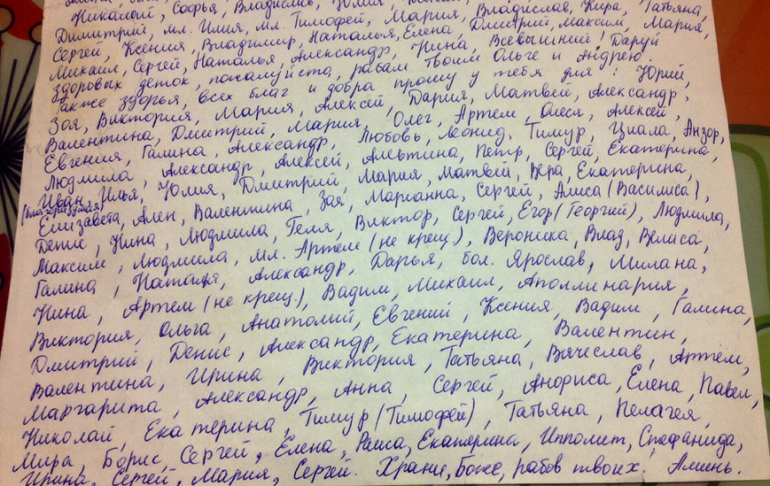 Николай, Софья, Владислав, Юлия
Димитрий, мл. Илия, мл. Тимофей, Мария, Владислав, Кира, Татьяна,
Сергей, Ксения, Владимир, Наталья, Елена, Дмитрий, Максим, Мария,
Михаил, Сергей, Наталья, Александр, Нина, Всевышний! Даруй
здоровых деток, пожалуйста, рабам Твоим Ольге и Андрею.
Также здоровья, всех благ и добра прошу у тебя для: Юрий,
Зоя, Виктория, Мария, Алексей, Дария, Матвей, Александр,
Валентина, Дмитрий, Мария, Олег, Артем, Олеся, Алексей,
Евгения, Галина, Александр, Любовь, Леонид, Тимур, Циала, Анзор,
Людмила, Александр, Алексей, Альтина, Петр, Сергей, Екатерина,
Иван, Илья, Юлия, Дмитрий, Мария, Матвей, Вера, Екатерина,
Елизавета, Ален, Валентина, Зая, Марианна, Сергей, Алиса (Василиса),
Денис, Нина, Людмила, Геля, Виктор, Сергей, Егор (Георгий), Людмила,
Максим, Людмила, мл. Артем (не крещ.), Вероника, Влад, Велиса,
Галина, Наталья, Александр, Дарья, бол. Ярослав, Милана,
Нина, Артем (не крещ.), Вадим, Михаил, Аполлинария,
Виктория, Ольга, Анатолий, Евгений, Ксения, Вадим, Галина,
Дмитрий, Денис, Александр, Екатерина, Валентин,
Валентина, Ирина, Виктория, Татьяна, Вячеслав, Артем,
Маргарита, Александр, Анна, Сергей, Анориса, Елена, Павел,
Николай, Екатерина, Тимур (Тимофей), Татьяна, Пелагея,
Мира, Борис, Сергей, Елена, Раиса, Екатерина, Ипполит, Стефанида,
Ирина, Сергей, Мария, Сергей. Храни, Боже, рабов твоих! Аминь.